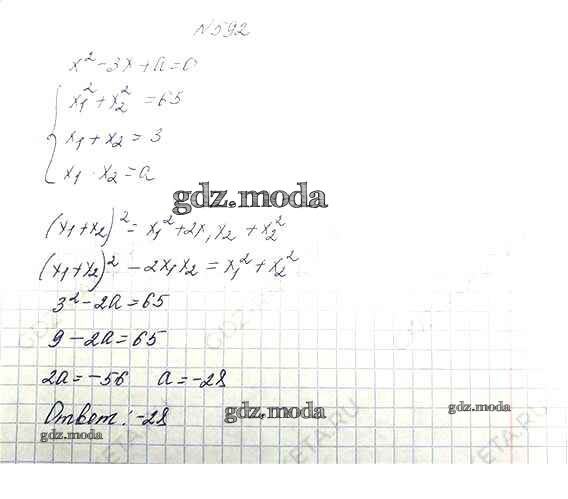 №592
x² - 3x + a = 0
x₁² + x₂² = 65
x₁ + x₂ = 3
x₁ · x₂ = a
gdz.moda
(x₁+x₂)² = x₁² + 2x₁x₂ + x₂²
(x₁+x₂)² - 2x₁x₂ = x₁² + x₂²
3² - 2a = 65
9 - 2a = 65
2a = -56 a = -28
Ответ: -28
gdz.moda
gdz.moda
gdz.moda